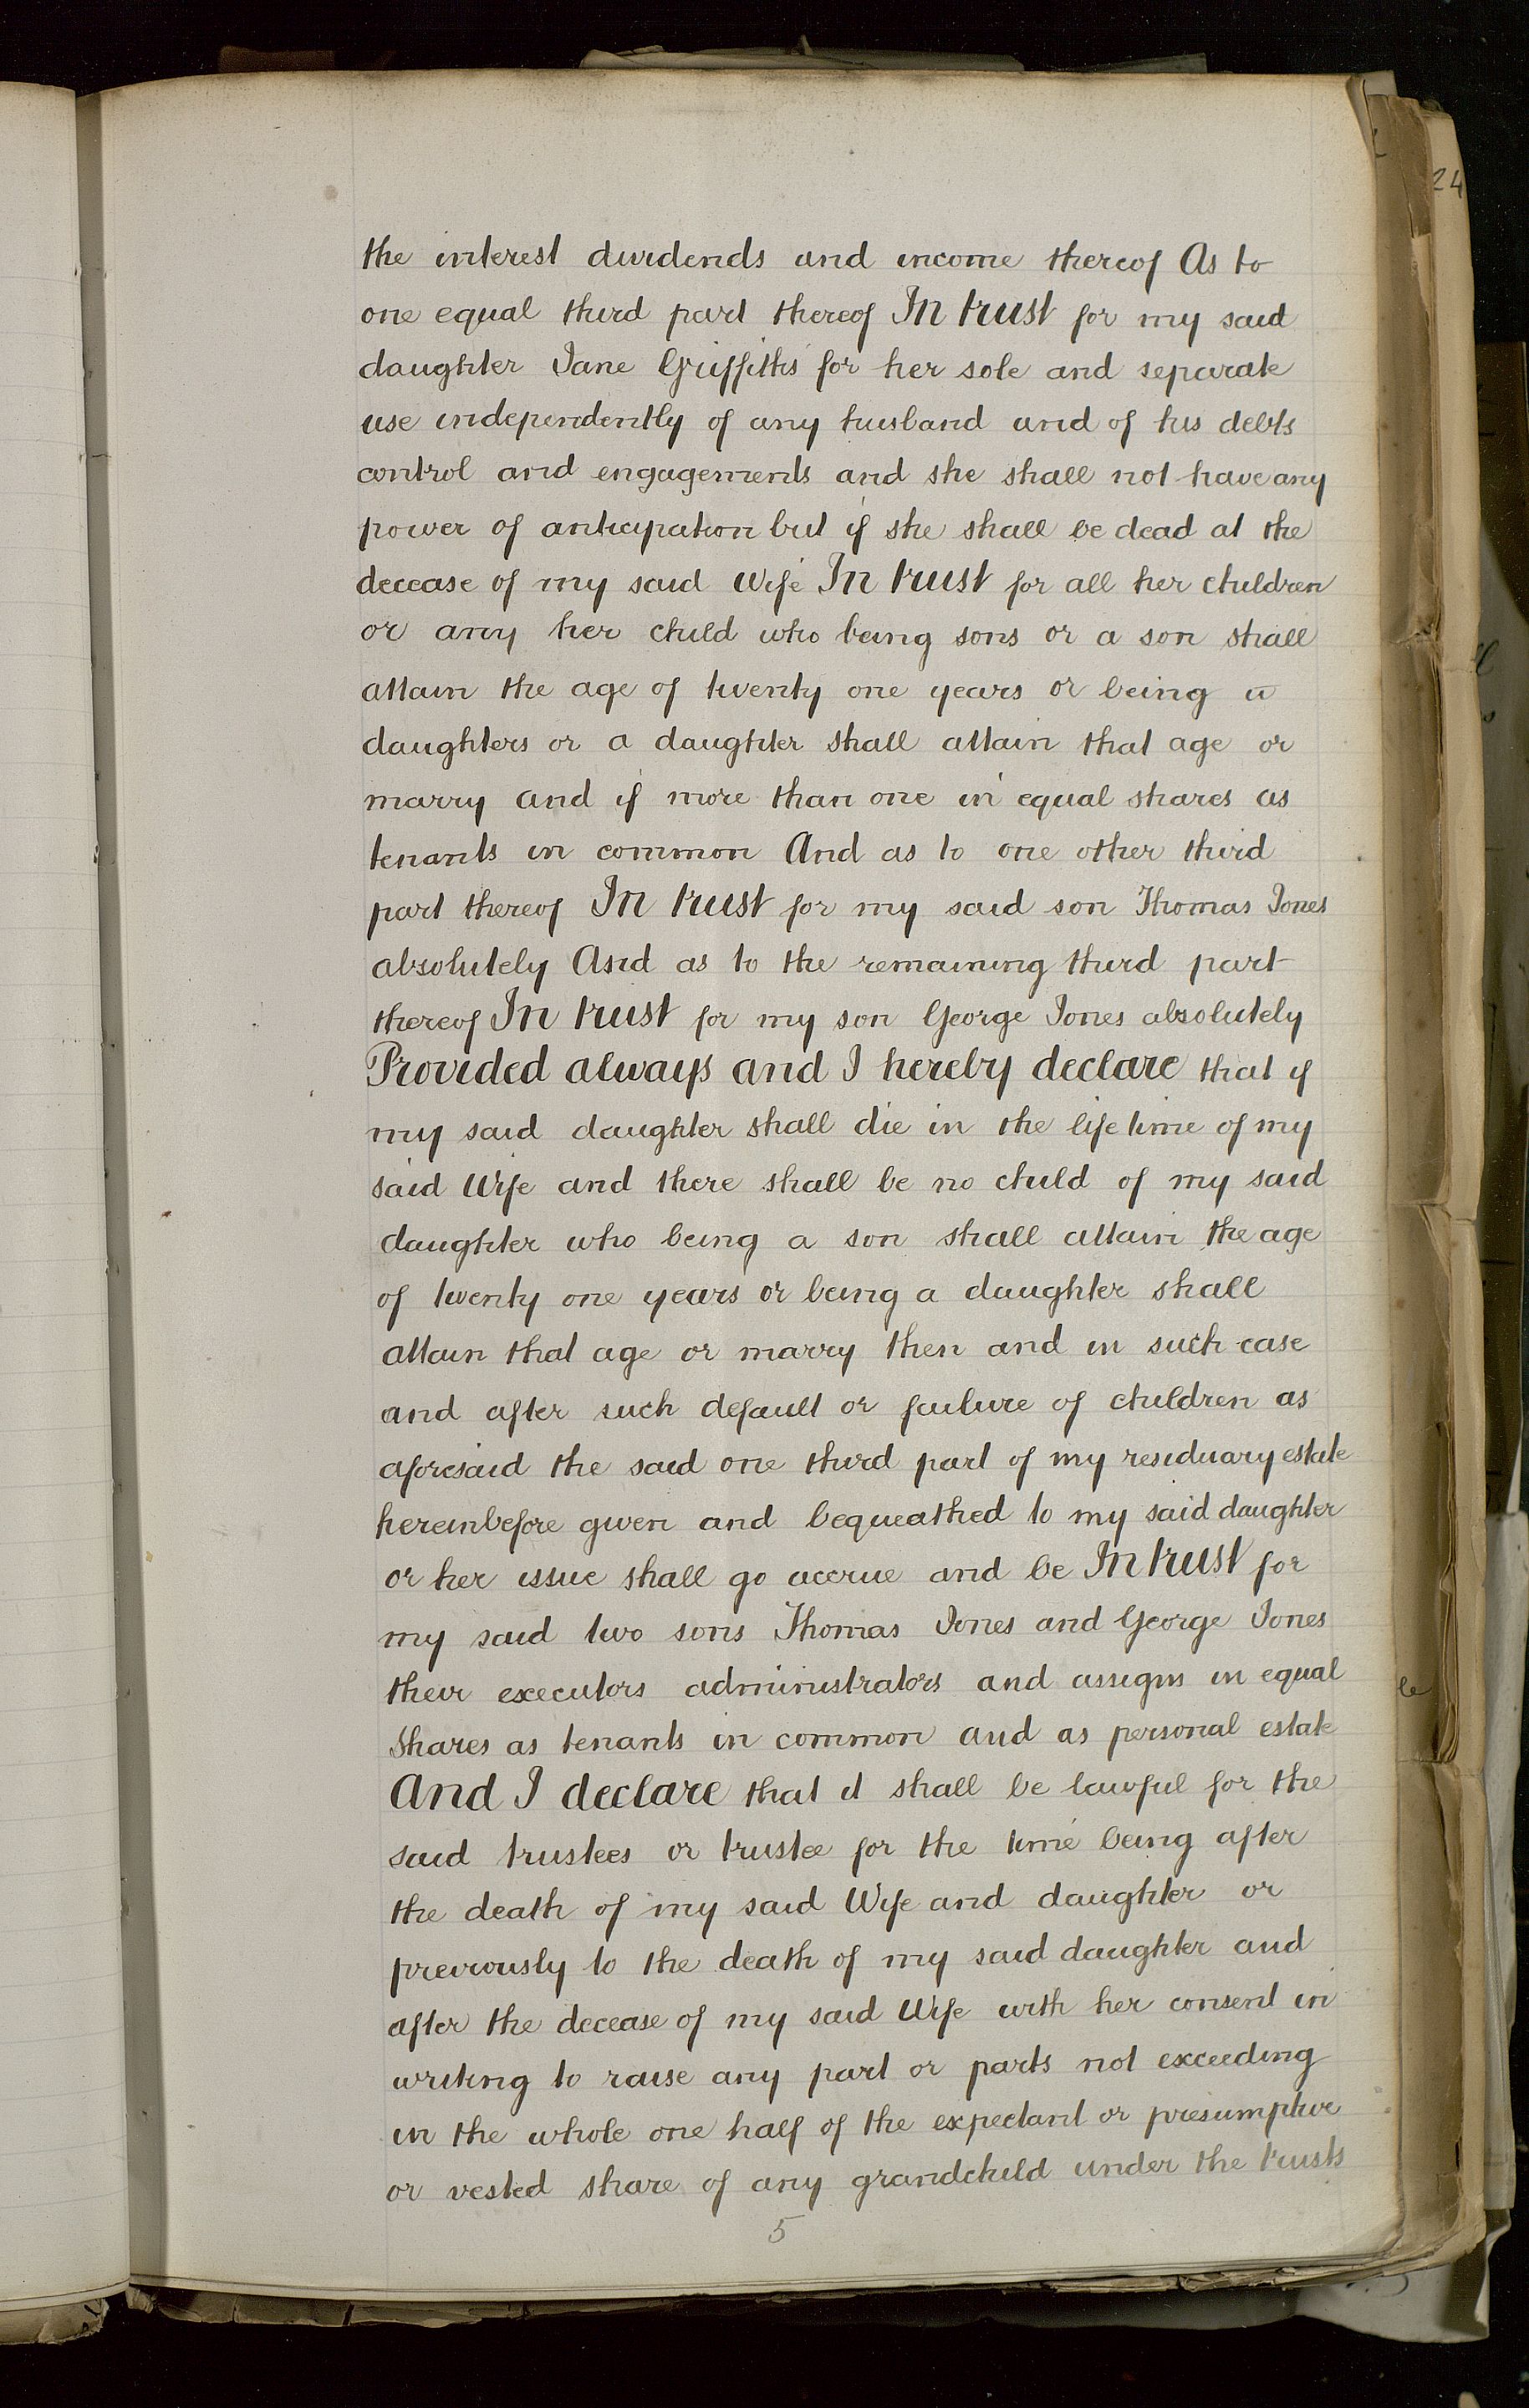 the interest dividends and income thereof As to
one equal third part thereof In trust for my said
daughter Jane Griffiths for her sole and separate
use independently of any husband and of his debts
control and engagements and she shall not have any
power of anticipation but if she shall be dead at the
decease of my said Wife In trust for all her children
or any her child who being sons or a son shall
attain the age of twenty one years or being a
daughters or a daughter shall attain that age or
marry and if more than one in equal shares as
tenants in common And as to one other third
part thereof In trust for my said son Thomas Jones
absolutely And as to the remaining third part
thereof In trust for my son George Jones absolutely
Provided always and I hereby declare that if
my said daughter shall die in the life time of my
said Wife and there shall be no child of my said
daughter who being a son shall attain the age
of twenty one years or being a daughter shall
attain that age or marry then and in such case
and after such default or failure of children as
aforesaid the said one third part of my residuary estate
hereinbefore given and bequeathed to my said daughter
or her issue shall go accrue and be In trust for
my said two sons Thomas Jones and George Jones
their executors administrators and assigns in equal
shares as tenants in common and as personal estate
And I declare that it shall be lawful for the
said trustees or trustee for the time being after
the death of my said Wife and daughter or
previously to the death of my said daughter and
after the decease of my said Wife with her consent in
writing to raise any part or parts not exceeding
in the whole one half of the expectant or presumptive
or vested share of any grandchild under the trusts
5
24